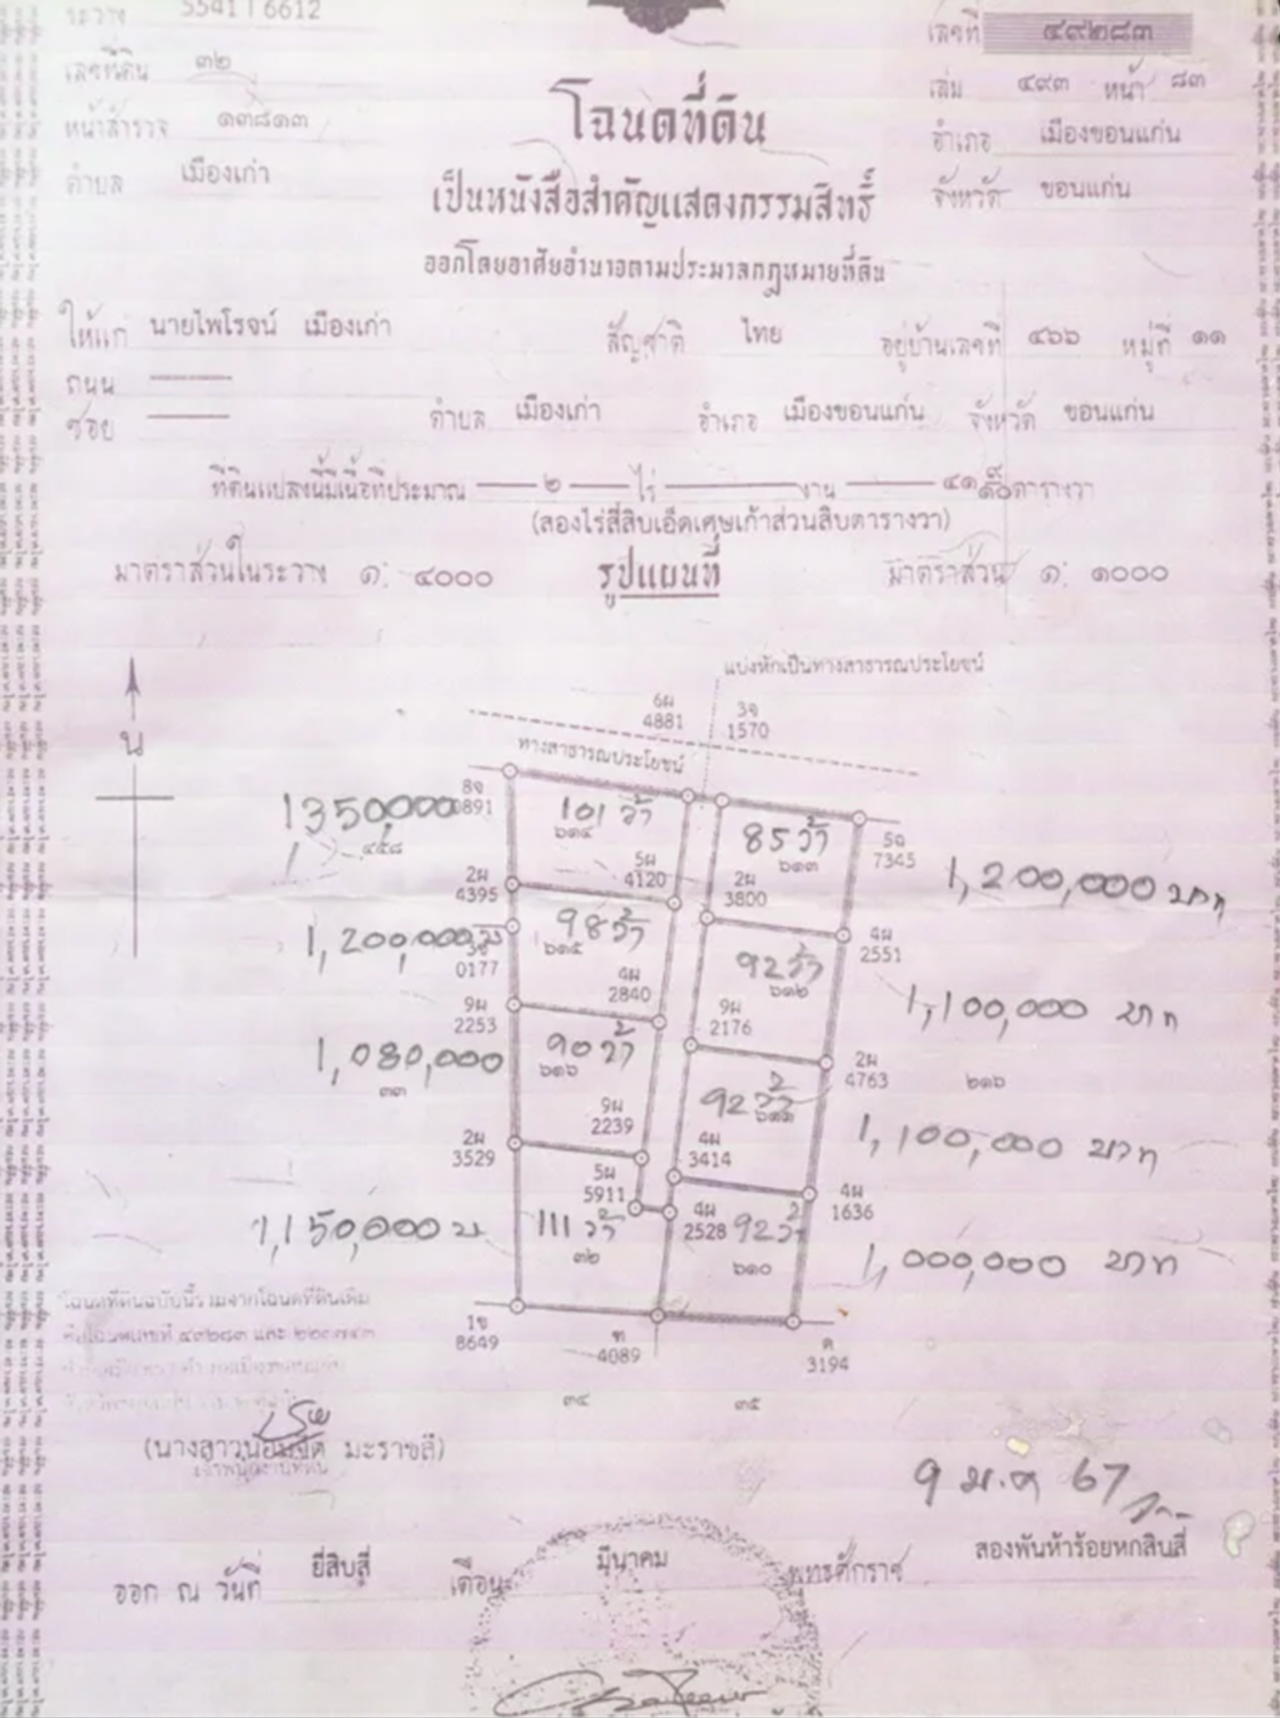 ระวาง 5541 I 6612
เลขที่ ๔๙๒๘๓
เลขที่ดิน ๓๒
เล่ม ๔๙๓ หน้า ๘๓
หน้าสำรวจ ๑๓๘๑๓
โฉนดที่ดิน
อำเภอ เมืองขอนแก่น
ตำบล เมืองเก่า
เป็นหนังสือสำคัญแสดงกรรมสิทธิ์
จังหวัด ขอนแก่น
ออกโดยอาศัยอำนาจตามประมาลกฎหมายที่ดิน
ให้แก่ นายไพโรจน์ เมืองเก่า สัญชาติ ไทย อยู่บ้านเลขที่ ๔๖๖ หมู่ที่ ๑๑
ถนน
ซอย ตำบล เมืองเก่า อำเภอ เมืองขอนแก่น จังหวัด ขอนแก่น
ที่ดินแปลงนี้มีเนื้อที่ประมาณ ๒ ไร่ งาน ๔๑ ๙/๑๐ ตารางวา
(สองไร่สี่สิบเอ็ดเศษเก้าส่วนสิบตารางวา)
มาตราส่วนในระวาง ๑: ๔๐๐๐ รูปแผนที่ มาตราส่วน ๑: ๑๐๐๐
แบ่งหักเป็นทางสาธารณประโยชน์
6ผ 3จ
4881 1570
น
ทางสาธารณประโยชน์
8จ
0891
1350,000
101 ว้า
๖๑๔
๔๕๘
85 ว้า
๖๑๓
5ฉ
7345
1,200,000 บาท
2ผ
4395
5ผ
4120
2ผ
3800
1,200,000 บ
98 ว้า
๖๑๕
0177
4ผ
2551
92 ว้า
๖๑๒
4ผ
2840
9ผ
2253
9ผ
2176
1,100,000 บาท
1,080,000
90 ว้า
๖๑๖
๓๓
2ผ
4763
๒๑๖
92 ว้า
9ผ
2239
2ผ
3529
4ผ
3414
1,100,000 บาท
5ผ
5911
4ผ
2528
4ผ
1636
1,150,000 บ
111 ว้า
๓๒
92 ว้า
๖๑๐
1,000,000 บาท
โฉนดที่ดินฉบับนี้รวมจากโฉนดที่ดินเดิม
1ข
8649
ฑ
4089
ค
3194
๓๔ ๓๕
(นางสาวน้อมจิต มะราชลี)
เจ้าพนักงานที่ดิน
9 ม.ค 67
ออก ณ วันที่ ยี่สิบสี่ เดือน มีนาคม พุทธศักราช สองพันห้าร้อยหกสิบสี่